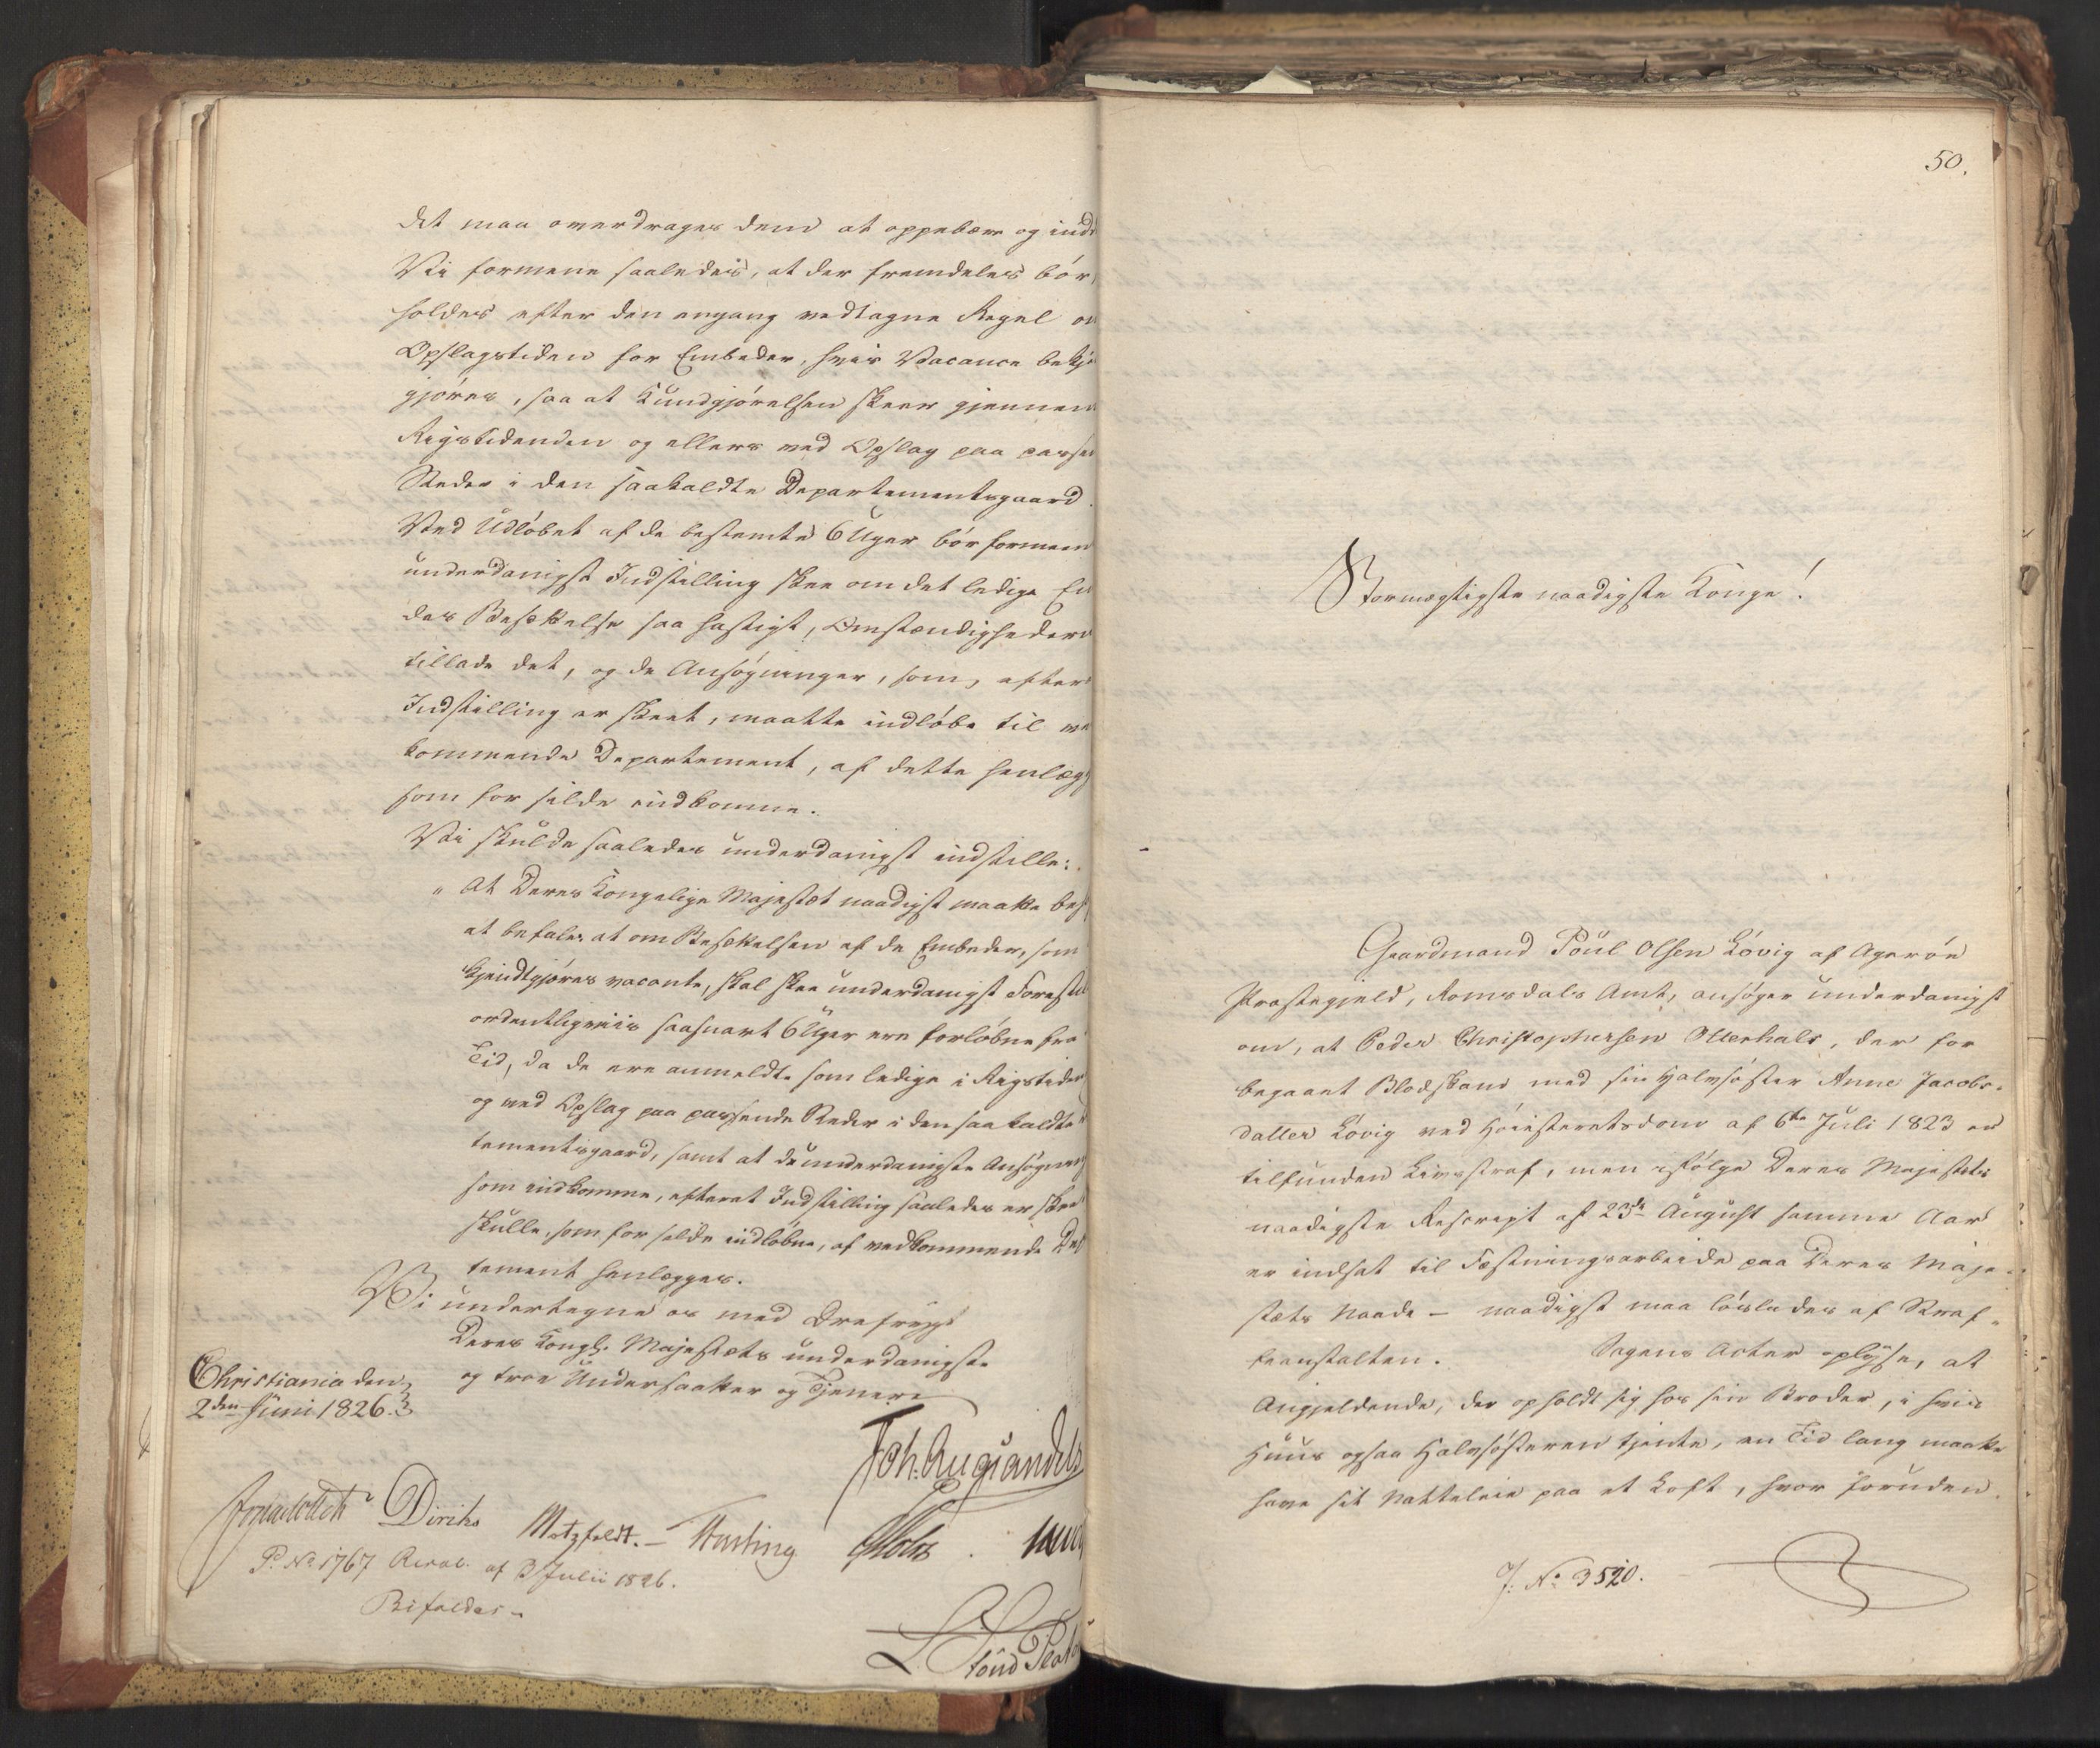 det maa overdrages dem at oppebære og ind
Vi formene saaledes, at der fremdeles bør
holdes efter den engang vedtagne Regel o
Opslagstiden for Embeder, hvis Vacance bekj
gjøres, saa at Kundgjørelsen skeer gjennem
Rigstidenden og ellers ved Opslag paa passe
Steder i den saakaldte Departementsgaard.
Ved Udløbet af de bestemte 6 Uger bør formeen
underdanigst Indstilling skee om det ledige Em
des Besættelse saa hastigt, Omstændighedern
tillade det, og de Ansøgninger, som, efter
Indstilling er skeet, maatte indløbe til ve
kommende Departement, af dette henlægg
som for silde indkomne.
Vi skulde saaledes underdanigst indstille:
" At Deres Kongelige Majestæt naadigst maatte beh
at befale, at om Besættelsen af de Embeder, som
kjendtgjøres vacante, skal skee underdanigst Forestil
ordentligviis saasnart 6 Uger ere forløbne fra
Tid, da de ere anmeldte som ledige i Rigstiden
og ved Opslag paa passende Steder i den saakaldte
tementsgaard, samt at de underdanigste Ansøgning
som indkomme, efterat Indstilling saaledes er skeet
skulle, som for silde indløbne, af vedkommende De
tement henlægges.
Vi undertegne os med Ærefrygt
Deres Kongl. Majestæts underdanigste
og troe Undersaatter og Tjenere
Christiania den
2den Juni 1826.
Joh. Aug. Sandels
Diriks Motzfeldt. Fasting Holst
P. No 1767 Resol. af 3 Julii 1826.
Bifaldes.
50.
Stormægtigste naadigste Konge!
Gaardmand Poul Olsen Løvig af Agerøe
Præstegjeld, Romsdals Amt, ansøger underdanigst
om, at Peder Christophersen Otterhals, der for
begaaet Blodskam med sin Halvsøster Anne Jacobs-
datter Løvig ved Høiesteretsdom af 6te Juli 1823 er
tilfunden Livsstraf, men ifølge Deres Majestæts
naadigste Rescript af 23de August samme Aar
er indsat til Fæstningsarbeide paa Deres Maje-
stæts Naade – naadigst maa løslades af Straf-
feanstalten. Sagens Acter oplyse, at
Angjeldende, der opholdt sig hos sin Broder, i hvis
Huus ogsaa Halvsøsteren tjente, en Tid lang maatte
have sit Natteleie paa et Loft, hvor foruden
J: No 3520.